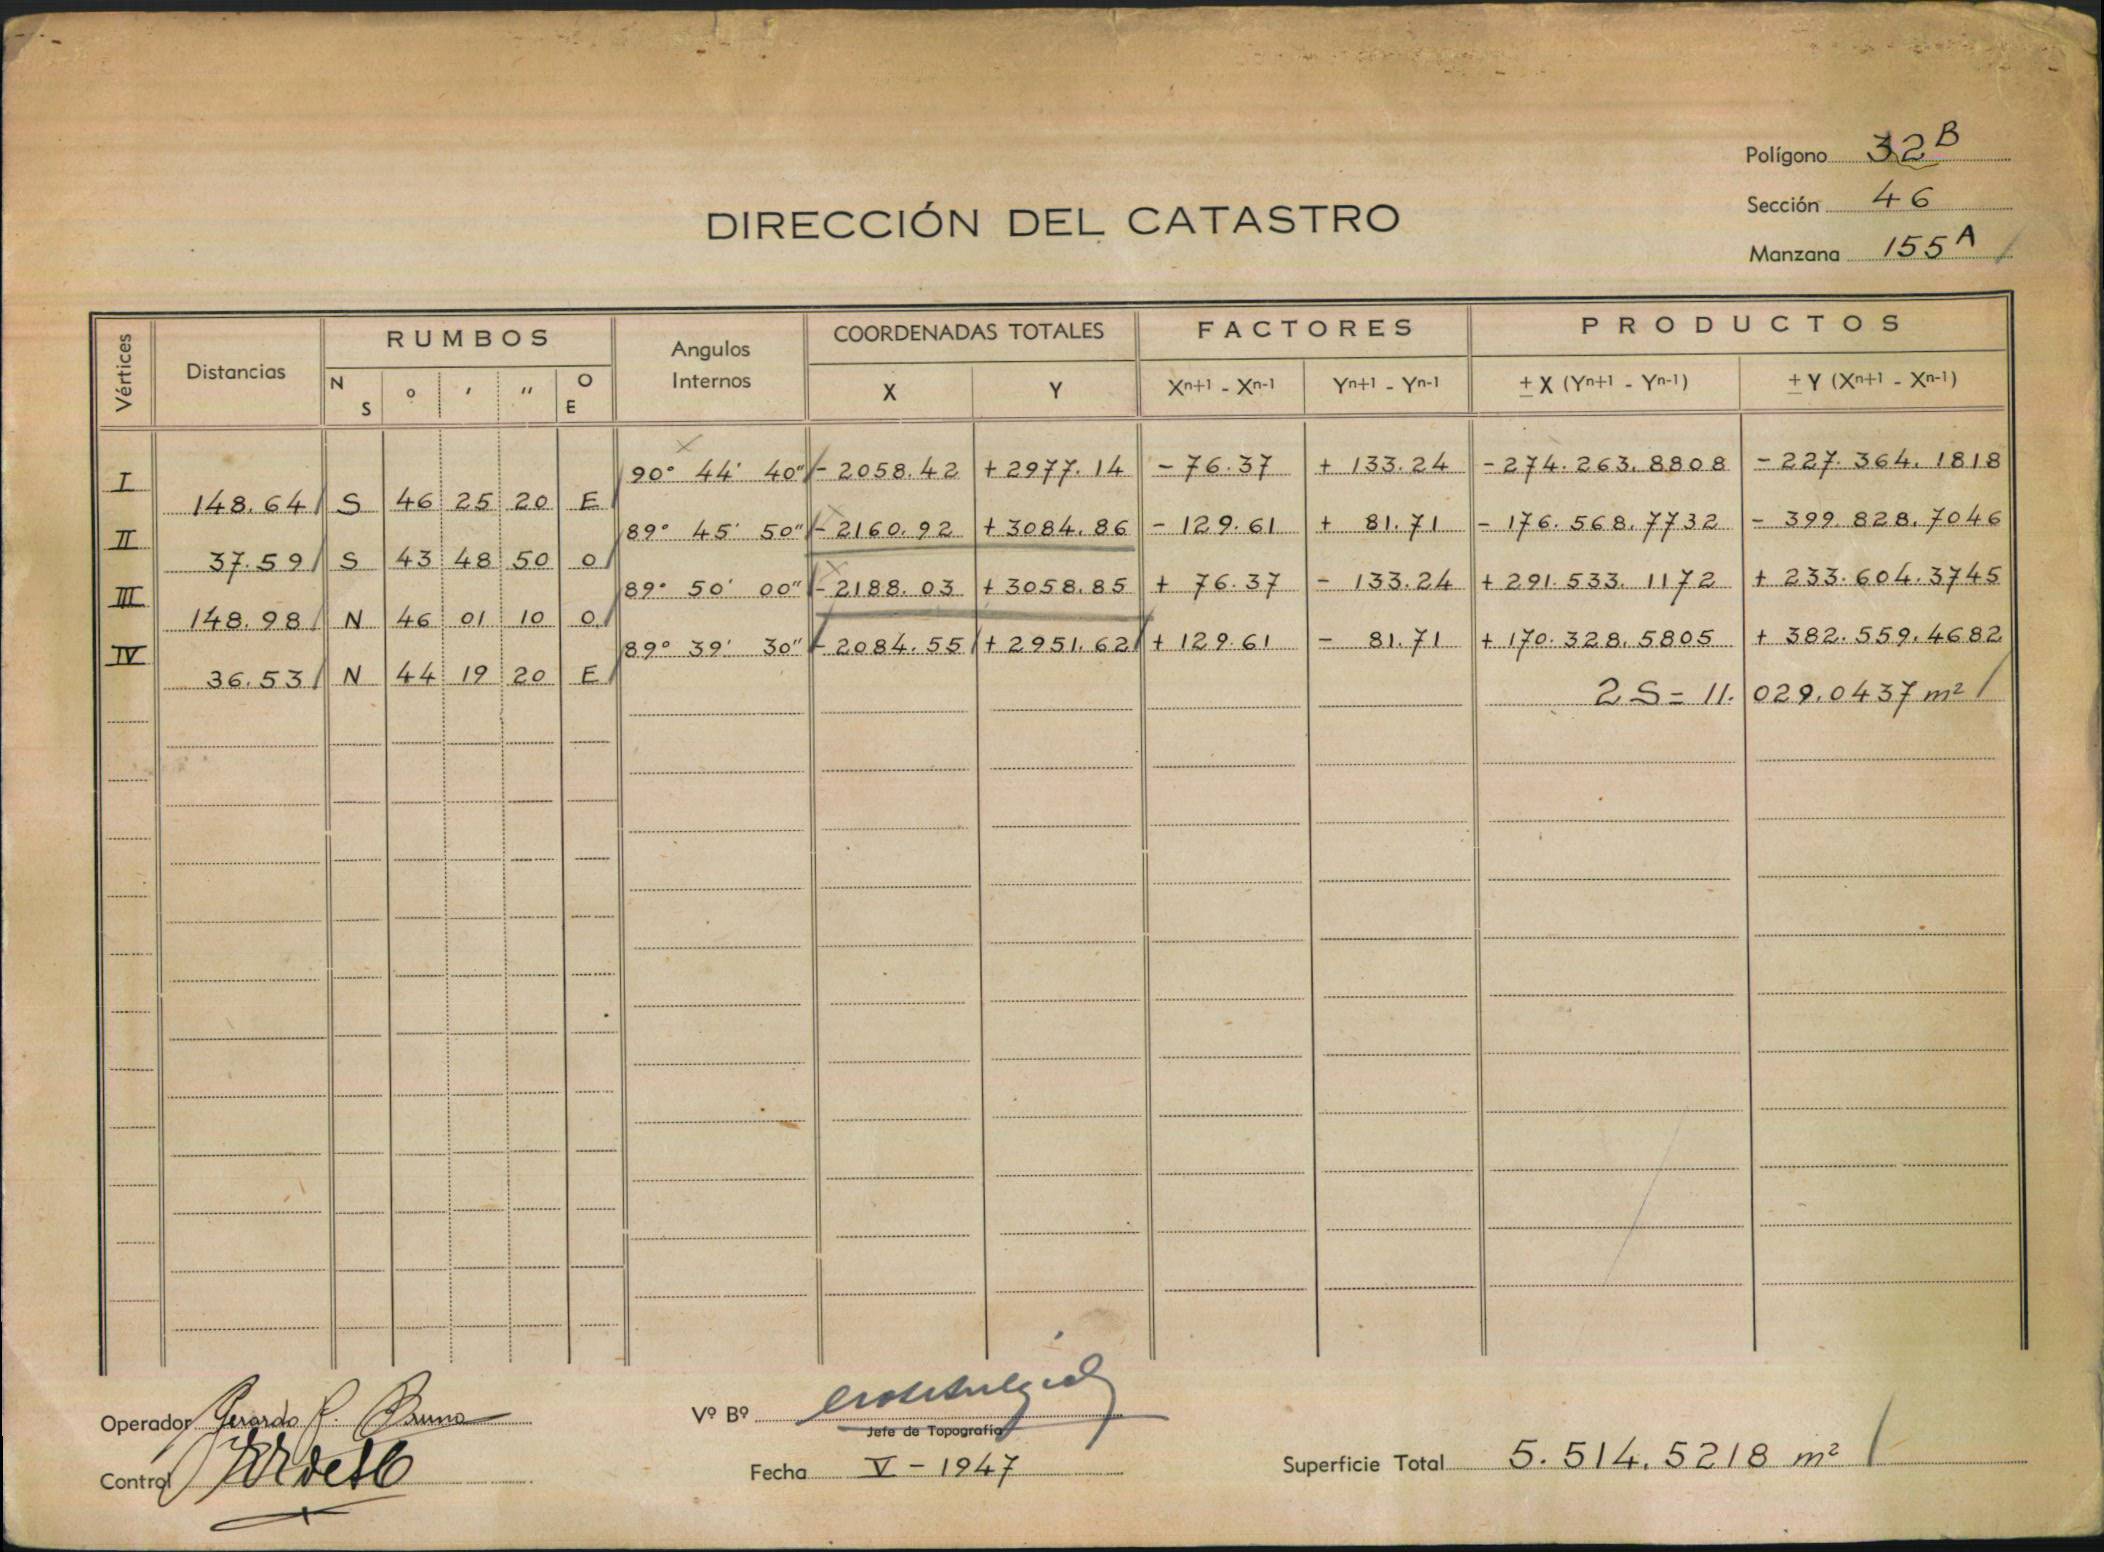 Polígono 32B
Sección 46
Manzana 155A
DIRECCIÓN DEL CATASTRO
Vértices Distancias RUMBOS Angulos Internos COORDENADAS TOTALES FACTORES PRODUCTOS
N S ° ′ ″ O E X Y Xn+1 - Xn-1 Yn+1 - Yn-1 ± X (Yn+1 - Yn-1) ± Y (Xn+1 - Xn-1)
I 90° 44' 40" - 2058.42 + 2977.14 - 76.37 + 133.24 - 274.263.8808 - 227.364.1818
148.64 S 46 25 20 E
II 89° 45' 50" - 2160.92 + 3084.86 - 129.61 + 81.71 - 176.568.7732 - 399.828.7046
37.59 S 43 48 50 O
III 89° 50' 00" - 2188.03 + 3058.85 + 76.37 - 133.24 + 291.533.1172 + 233.604.3745
148.98 N 46 01 10 O
IV 89° 39' 30" - 2084.55 + 2951.62 + 129.61 - 81.71 + 170.328.5805 + 382.559.4682
36.53 N 44 19 20 E
2S = 11.029.0437 m²
Operador Gerardo P. Bruno
Vº Bº
Jefe de Topografía
Control
Fecha V - 1947
Superficie Total 5.514.5218 m²